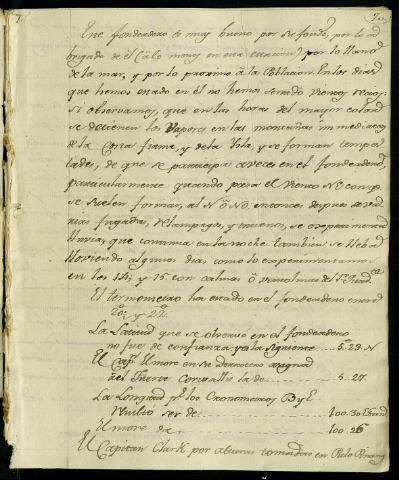 7.
Este fondeadero es muy bueno por su fondo, por lo a
brigado de el (a lo menos en esta estacion) por lo llano
de la mar, y por lo proximo a la Poblacion. En los dias
que hemos estado en el no hemos sentido vientos recios.
Si observamos, que en las horas del mayor calor
se detienen los Vapores en las montañas inmediatas
de la Costa firme, y de la Ysla, y se forman tempes
tades, de que se participa a veces en el fondeadero,
particularmente quando pasa el viento
se suelen formar, al N o NO. entonces despues de va
rias fugadas, relampagos, y truenos, se experimentan
lluvias que continua en la noche tambien se
lloviendo algunos dias, como lo experimentamos
en los 14, y 15 con calma o ventolinas del
El termometro ha estado en el fondeadero entre
20, y 22.
La Latitud que se observó en el fondeadero
no fue de confianza y es la siguiente 5.29. N
El Capn. Elmore en su Derrotero asigna
al Fuerte Cornwallis la de 5.27.
La Longitud pr. los Cronometros
ser de 100.30
Elmore da 100.26
El Capitan Clark por alturas tomadas en Pulo Pinang